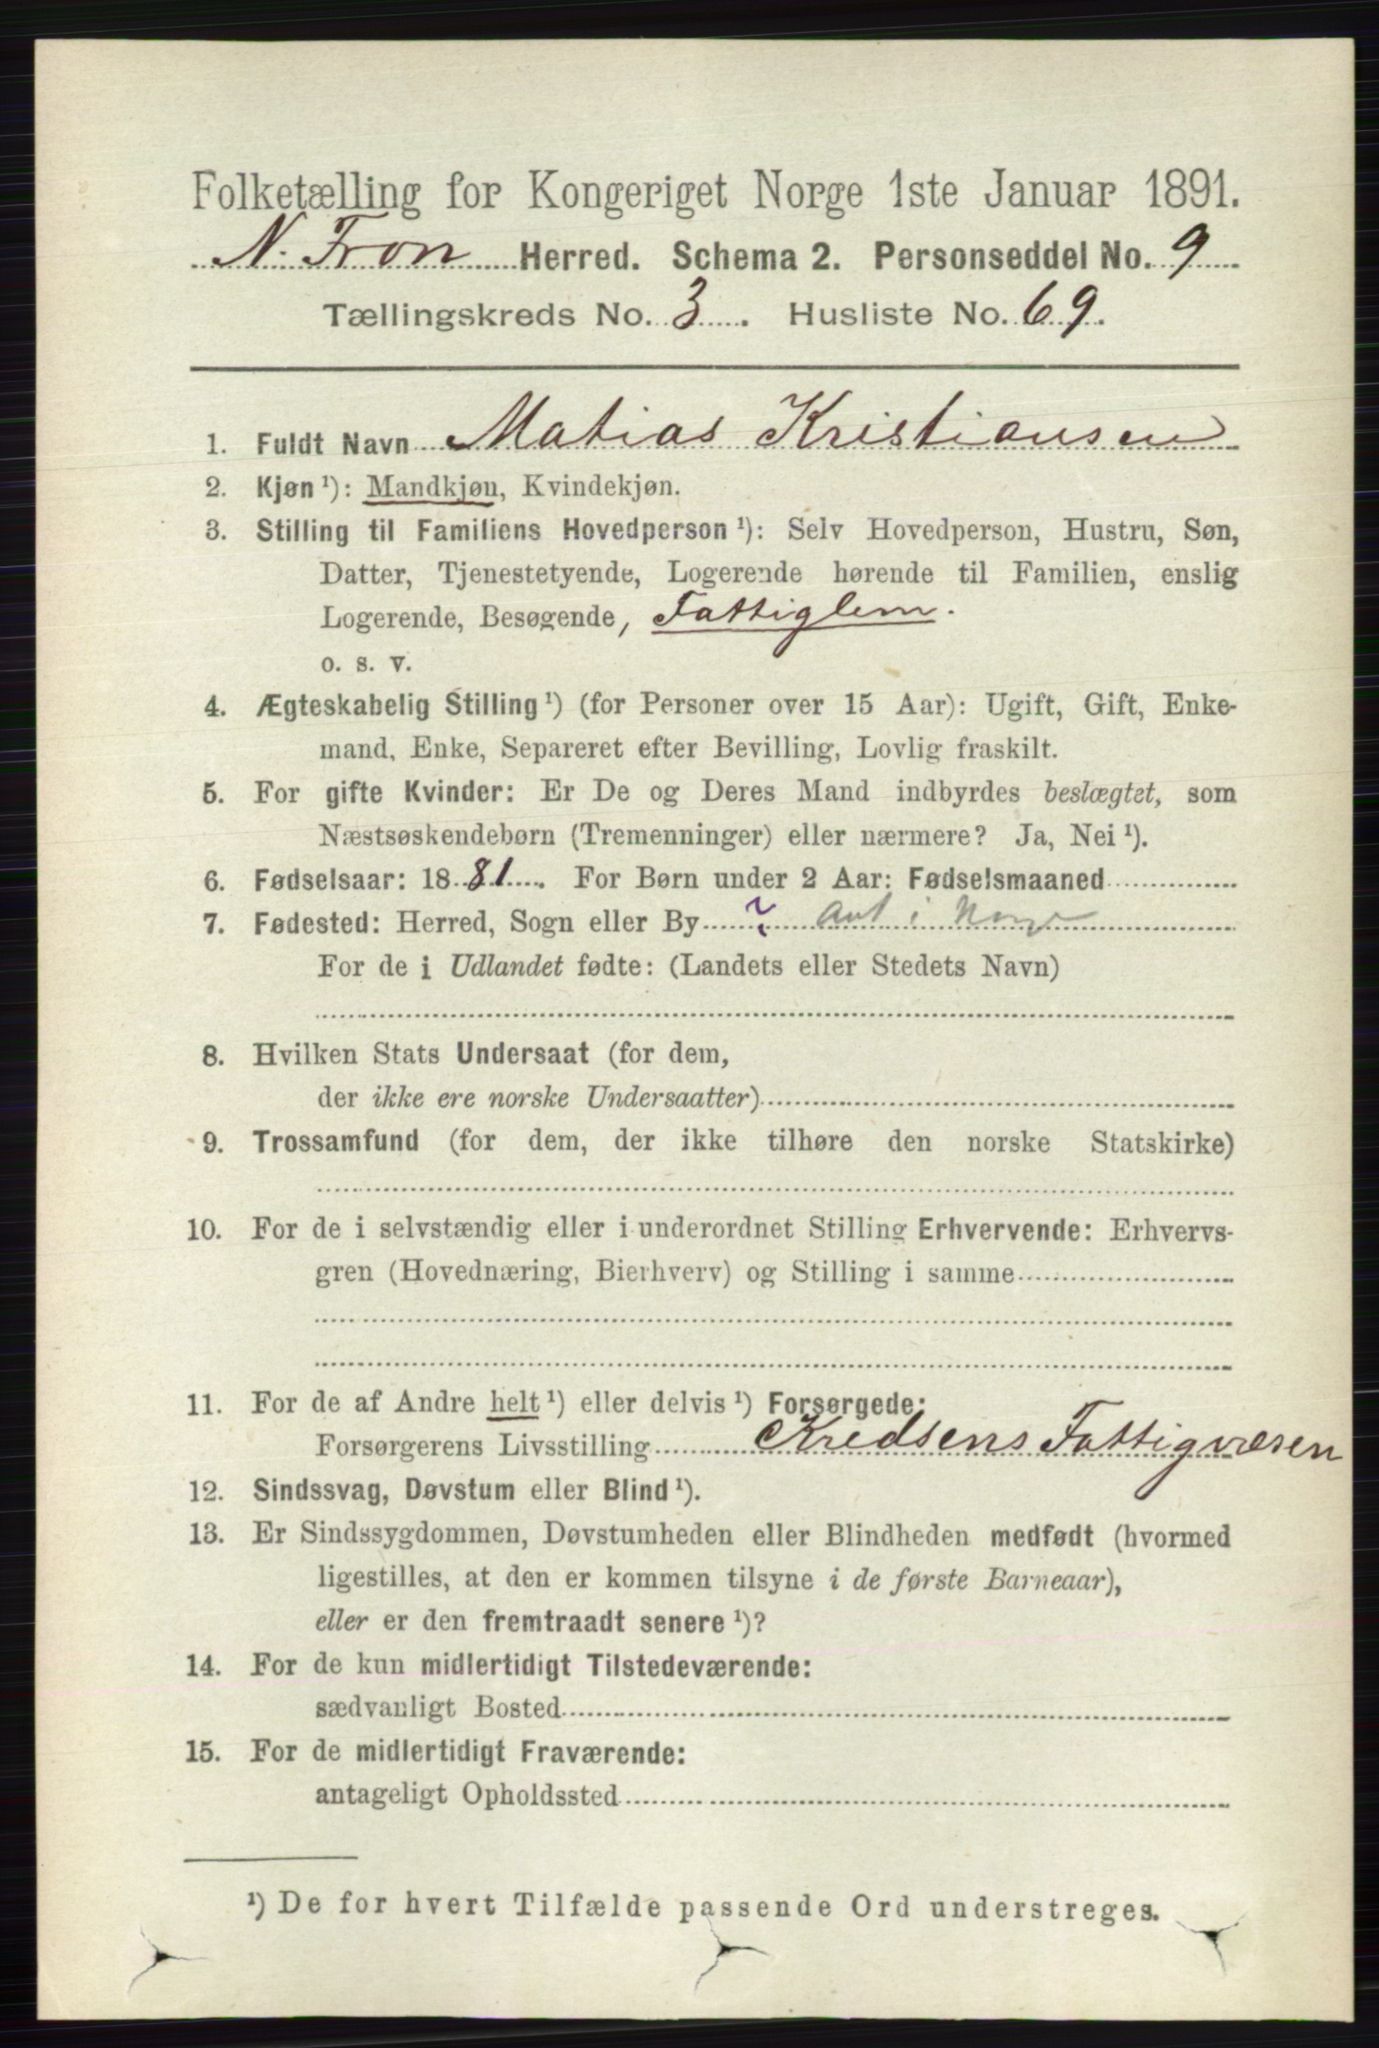 Folketælling for Kongeriget Norge 1ste Januar 1891.
N. Fron Herred. Schema 2. Personseddel No. 9
Tællingskreds No. 3. Husliste No. 69.
1. Fuldt Navn Matias Kristiansen
2. Kjøn ¹): Mandkjøn, Kvindekjøn.
3. Stilling til Familiens Hovedperson ¹): Selv Hovedperson, Hustru, Søn,
Datter, Tjenestetyende, Logerende hørende til Familien, enslig
Logerende, Besøgende, Fattiglem.
o. s. v.
4. Ægteskabelig Stilling ¹) (for Personer over 15 Aar): Ugift, Gift, Enke-
mand, Enke, Separeret efter Bevilling, Lovlig fraskilt.
5. For gifte Kvinder: Er De og Deres Mand indbyrdes beslægtet, som
Næstsøskendebørn (Tremenninger) eller nærmere? Ja, Nei ¹).
6. Fødselsaar: 1881. For Børn under 2 Aar: Fødselsmaaned
7. Fødested: Herred, Sogn eller By ? Ant i Norge
For de i Udlandet fødte: (Landets eller Stedets Navn)
8. Hvilken Stats Undersaat (for dem,
der ikke ere norske Undersaatter)
9. Trossamfund (for dem, der ikke tilhøre den norske Statskirke)
10. For de i selvstændig eller i underordnet Stilling Erhvervende: Erhvervs-
gren (Hovednæring, Bierhverv) og Stilling i samme
11. For de af Andre helt ¹) eller delvis ¹) Forsørgede:
Forsørgerens Livsstilling Kredsens Fattigvæsen
12. Sindssvag, Døvstum eller Blind ¹).
13. Er Sindssygdommen, Døvstumheden eller Blindheden medfødt (hvormed
ligestilles, at den er kommen tilsyne i de første Barneaar),
eller er den fremtraadt senere ¹)?
14. For de kun midlertidigt Tilstedeværende:
sædvanligt Bosted
15. For de midlertidigt Fraværende:
antageligt Opholdssted
¹) De for hvert Tilfælde passende Ord understreges.